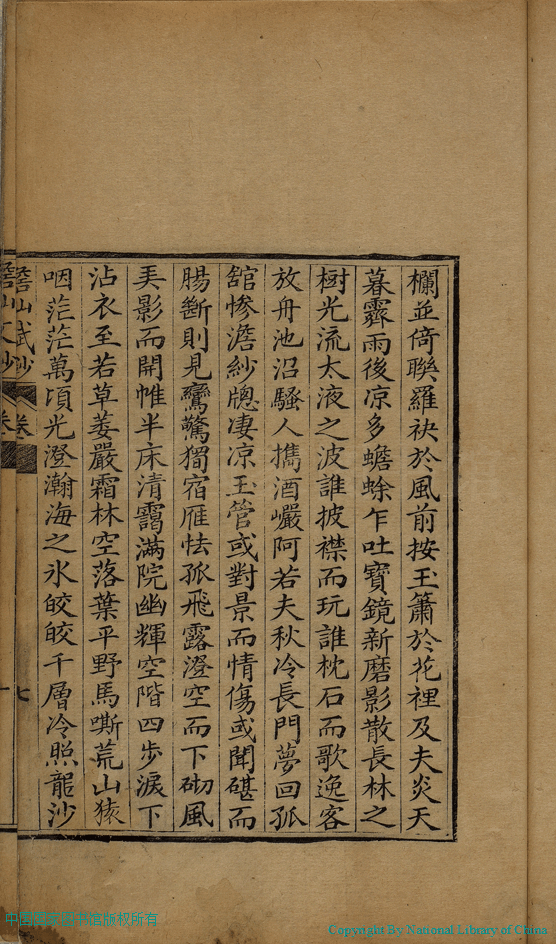 欄並倚聯羅袂於風前按玉簫於花裡及夫炎天
暮霽雨後凉多蟾蜍乍吐寶鏡新磨影散長林之
樹光流太液之波誰披襟而玩誰枕石而歌逸客
放舟池沼騷人攜酒巘阿若夫秋冷長門夢回孤
舘慘澹紗牕凄凉玉管或對景而情傷或聞碪而
腸斷則見鸞驚獨宿雁怯孤飛露澄空而下砌風
弄影而開帷半床清靄滿院幽輝空階四步淚下
沾衣至若草萎嚴霜林空落葉平野馬嘶荒山猿
咽茫茫萬頃光澄瀚海之氷皎皎千層冷照龍沙
卷
七
Copyright By National Library of China